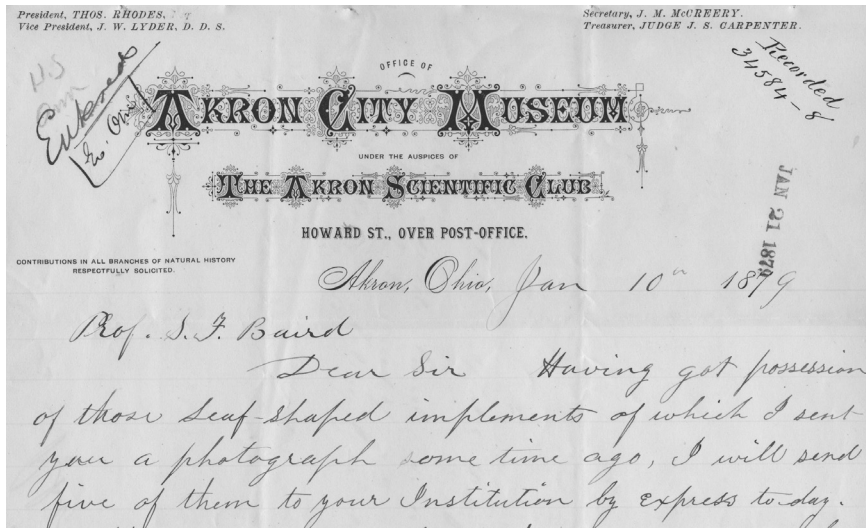 President, THOS. RHODES,
Vice President, J. W. LYDER, D. D. S.
Secretary, J. M. McCREERY.
Treasurer, JUDGE J. S. CARPENTER.
U.S
Entered
Recorded
34584-8
OFFICE OF
AKRON CITY MUSEUM
UNDER THE AUSPICES OF
THE AKRON SCIENTIFIC CLUB
HOWARD ST., OVER POST-OFFICE.
JAN 21 1879
CONTRIBUTIONS IN ALL BRANCHES OF NATURAL HISTORY
RESPECTFULLY SOLICITED.
Akron, Ohio, Jan 10th 1879
Prof. S. F. Baird
Dear Sir Having got possession
of those leaf-shaped implements of which I sent
you a photograph some time ago, I will send
five of them to your Institution by express to-day.